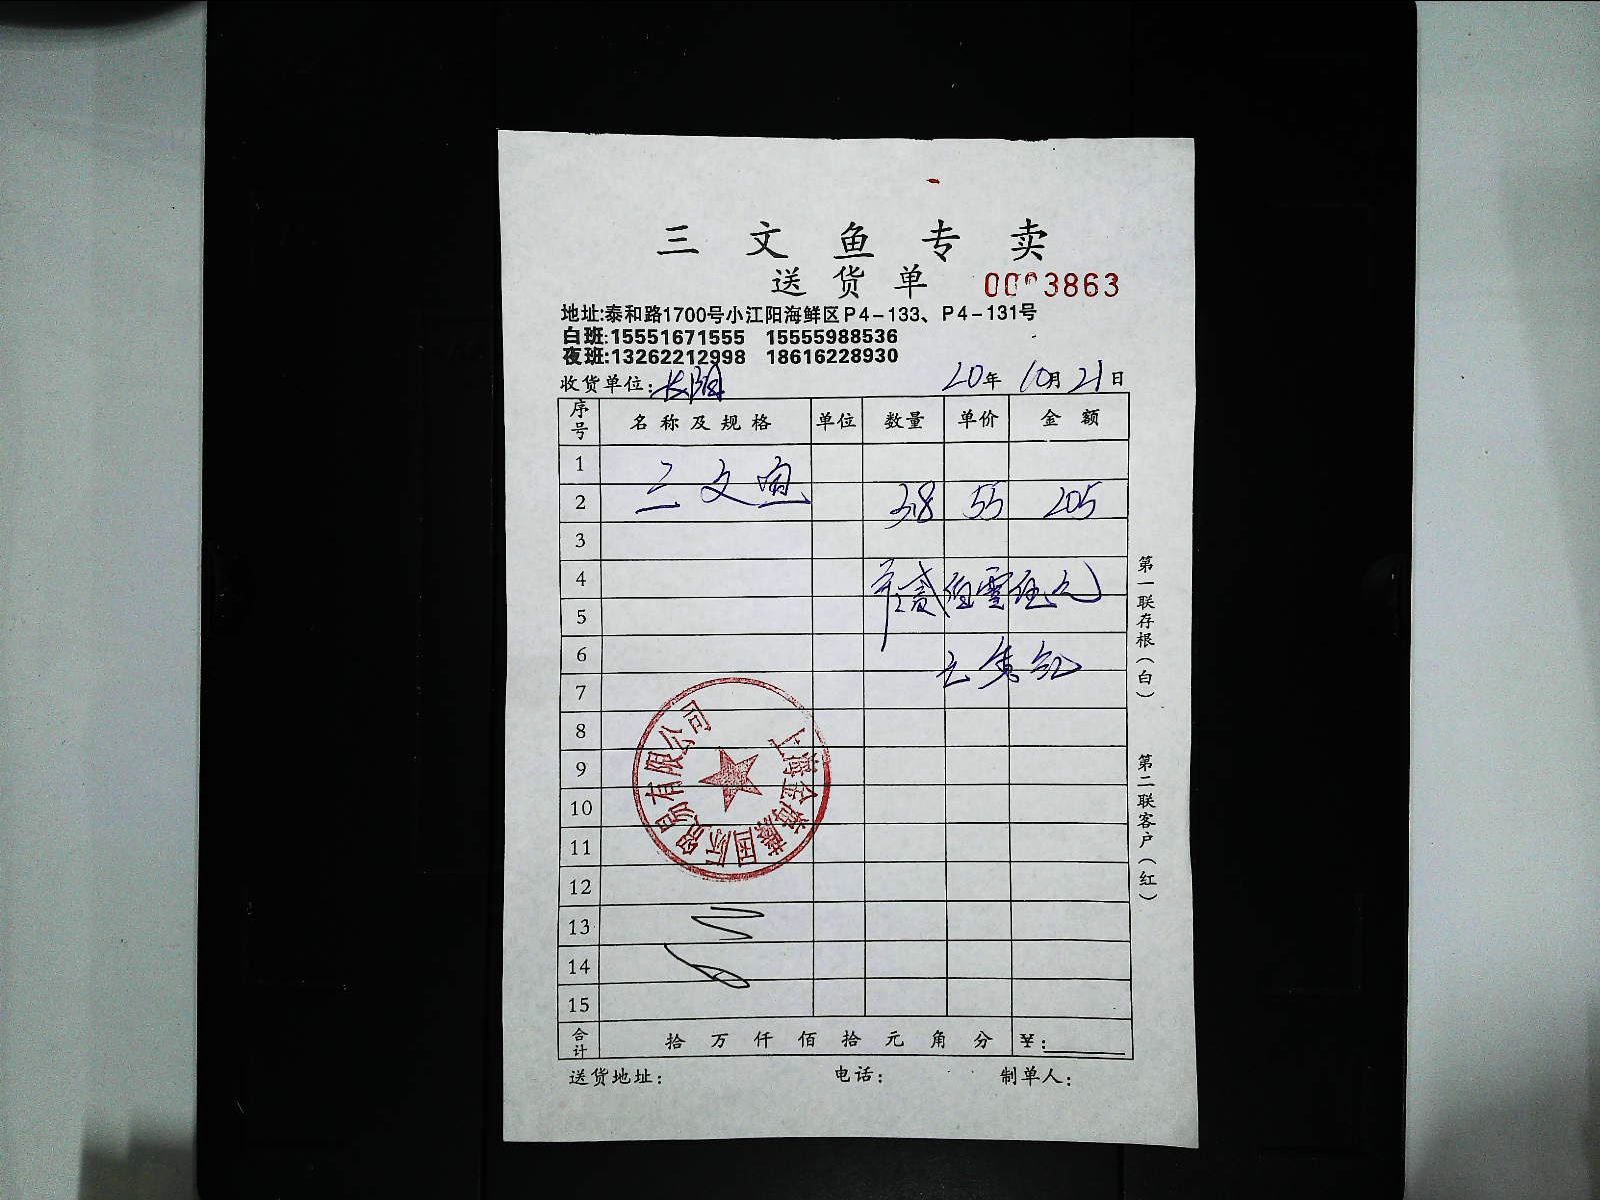 三文鱼专卖
送货单
地址:泰和路1700号小江阳海鲜区P4-133、P4-131号
白班:15551671555 15555988536
夜班:13262212998 18616228930
收货单位: 20年10月21日
序号 名称及规格 单位 数量 单价 金额
1 三文鱼
2 3.8 55 205
3
4 贰佰零伍元
5
6
7
8
9
10
11
12
13
14
15
合计 拾 万 仟 佰 拾 元 角 分 ¥:
送货地址: 电话: 制单人:
第一联存根(白) 第二联客户(红)
国际贸易有限公司